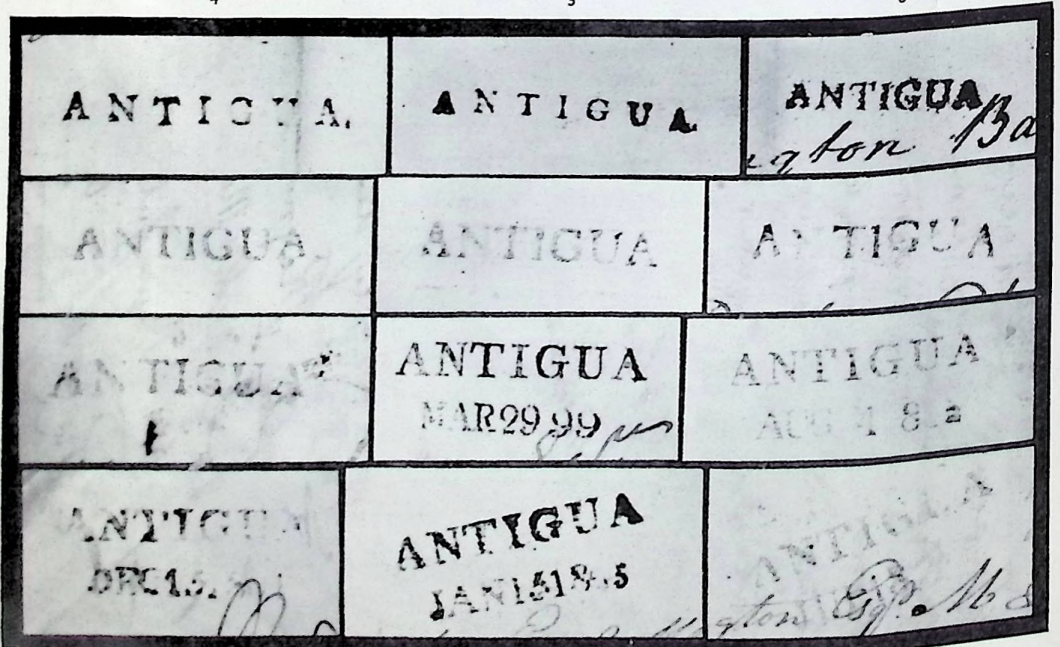 ANTIGUA.
ANTIGUA
ANTIGUA
gton
ANTIGUA.
ANTIGUA
ANTIGUA
ANTIGUA
ANTIGUA
MAR 29 99
ANTIGUA
AUG 4
ANTIGUA
DEC
ANTIGUA
JAN
ANTIGUA
gton Esqr. M